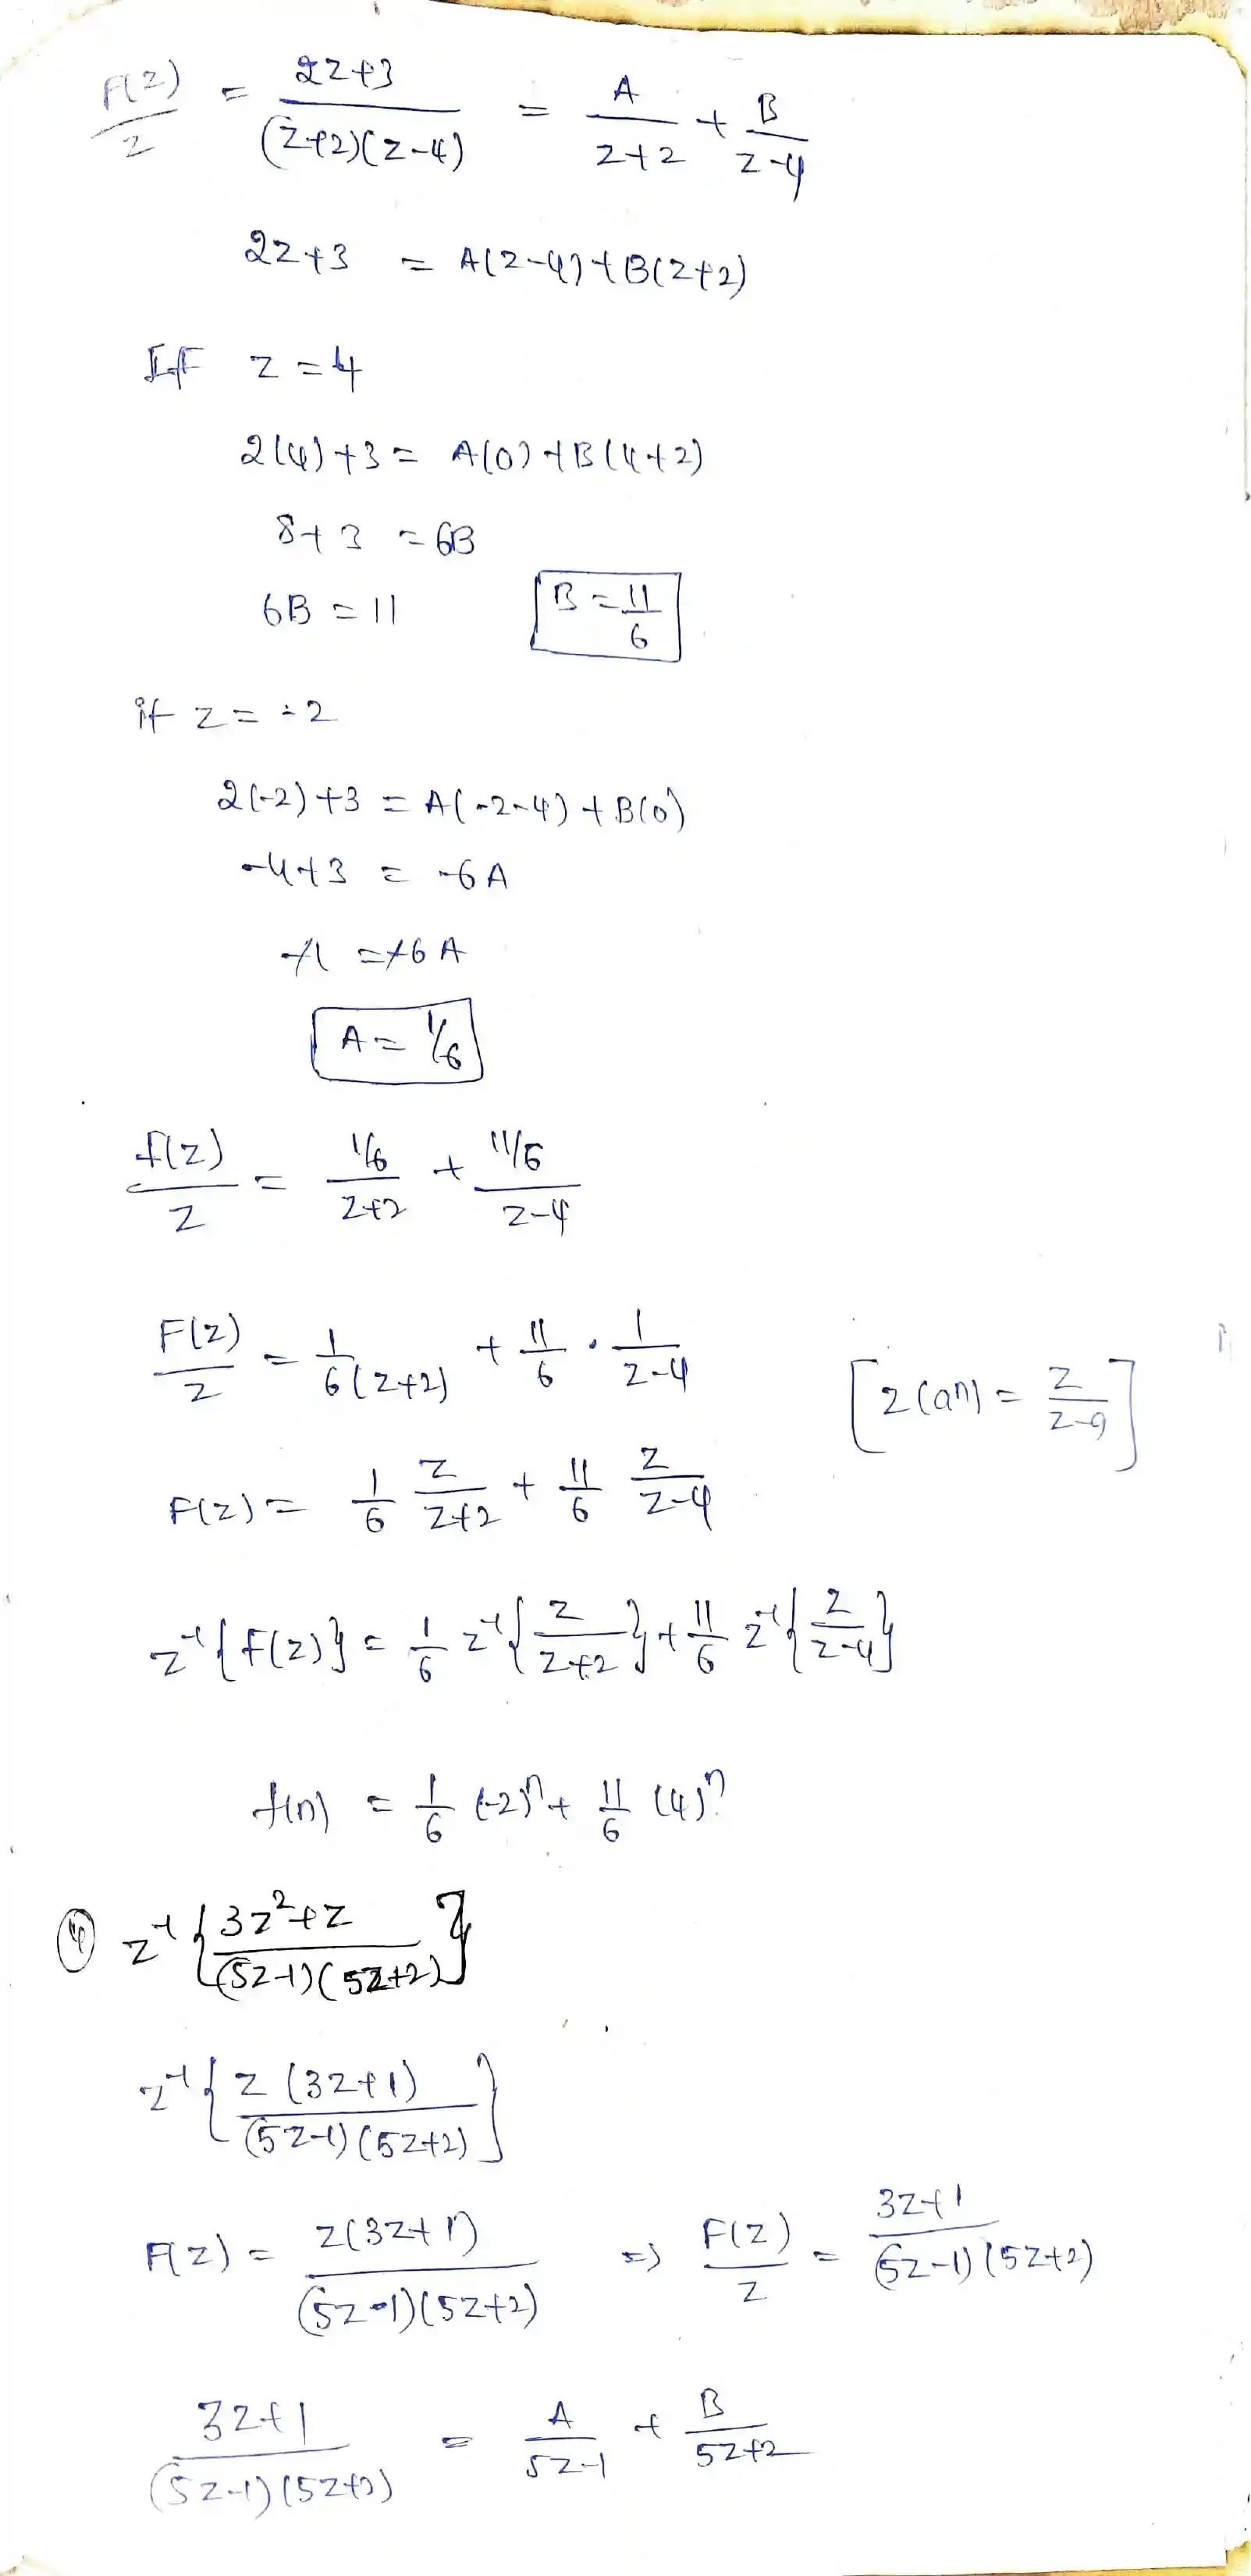 F(z)/z = 2z+3/(z+2)(z-4) = A/z+2 + B/z-4
2z+3 = A(z-4)+B(z+2)
If z=4
2(4)+3 = A(0)+B(4+2)
8+3 = 6B
6B = 11 B = 11/6
if z = -2
2(-2)+3 = A(-2-4)+B(0)
-4+3 = -6A
-1 = -6A
A = 1/6
f(z)/z = 1/6/z+2 + 11/6/z-4
F(z)/z = 1/6(z+2) + 11/6 · 1/z-4 [z(aⁿ) = z/z-a]
F(z) = 1/6 z/z+2 + 11/6 z/z-4
z⁻¹{F(z)} = 1/6 z⁻¹{z/z+2} + 11/6 z⁻¹{z/z-4}
f(n) = 1/6 (-2)ⁿ + 11/6 (4)ⁿ
④ z⁻¹{3z²+z/(5z-1)(5z+2)}
z⁻¹{z(3z+1)/(5z-1)(5z+2)}
F(z) = z(3z+1)/(5z-1)(5z+2) => F(z)/z = 3z+1/(5z-1)(5z+2)
3z+1/(5z-1)(5z+2) = A/5z-1 + B/5z+2